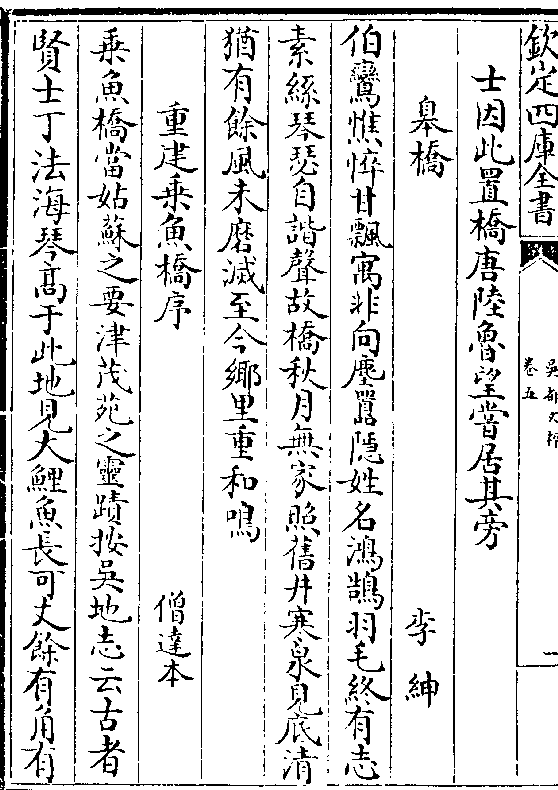 欽定四庫全書
吳都文粹
卷五
一
士因此置橋唐陸魯望嘗居其旁
皋橋　李紳
伯鸞憔悴甘飄寓非向塵囂隱姓名鴻鵠羽毛終有志
素絲琴瑟自諧聲故橋秋月無家照舊井寒泉見底清
猶有餘風未磨滅至今鄉里重和鳴
重建乘魚橋序　僧達本
乘魚橋當姑蘇之要津茂苑之靈蹟按吳地志云古者
賢士丁法海琴高于此地見大鯉魚長可丈餘有角有